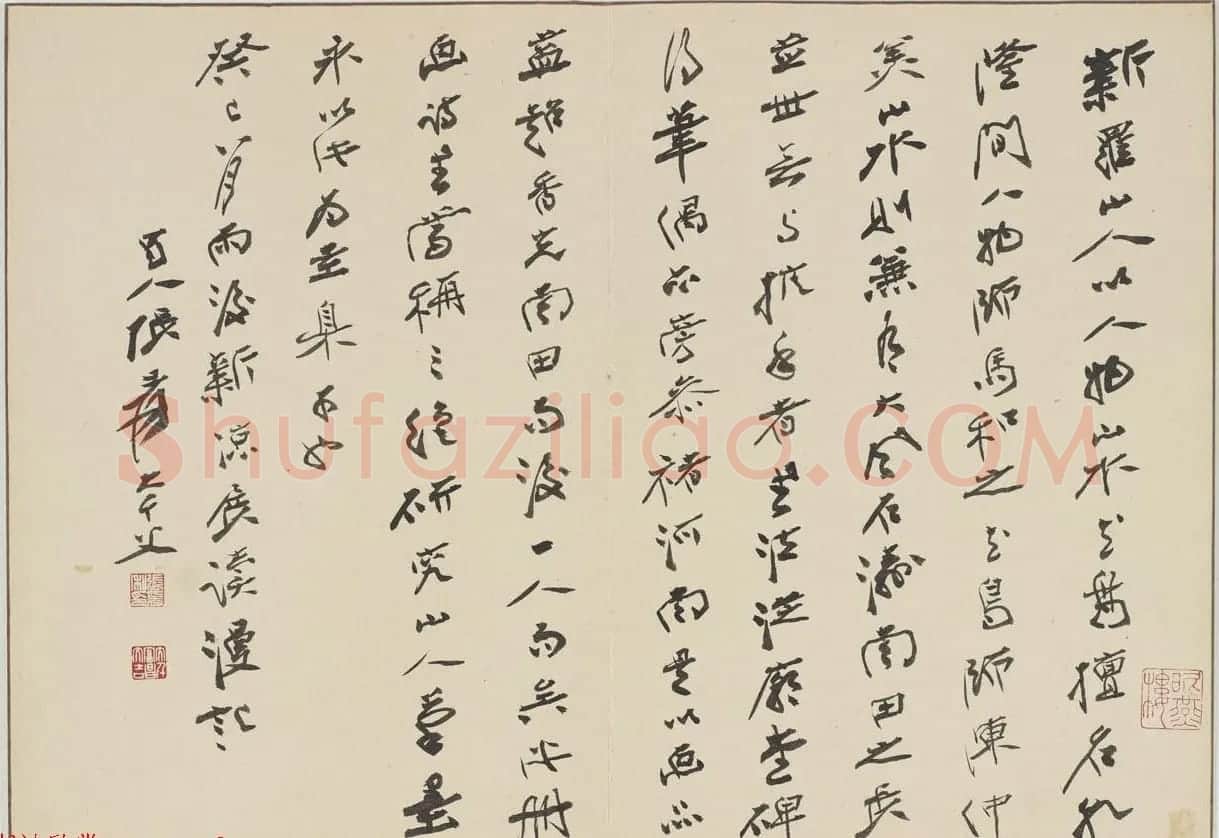 新羅山人以人物山水花鳥擅名於
澄間人物師馬和之花鳥師陳仲
美山水則兼有大風石濤南田之長
並世無與抗手者書法從廟堂碑
得筆偶亦旁參褚河南是以畫亦
益超香光南田而後一人而矣此冊
畫詩書當稱三絕研究山人學畫
永以此為圭臬可也
癸巳八月雨後新涼展讀漫記
百人張爰大千父
Shufaziliao.COM